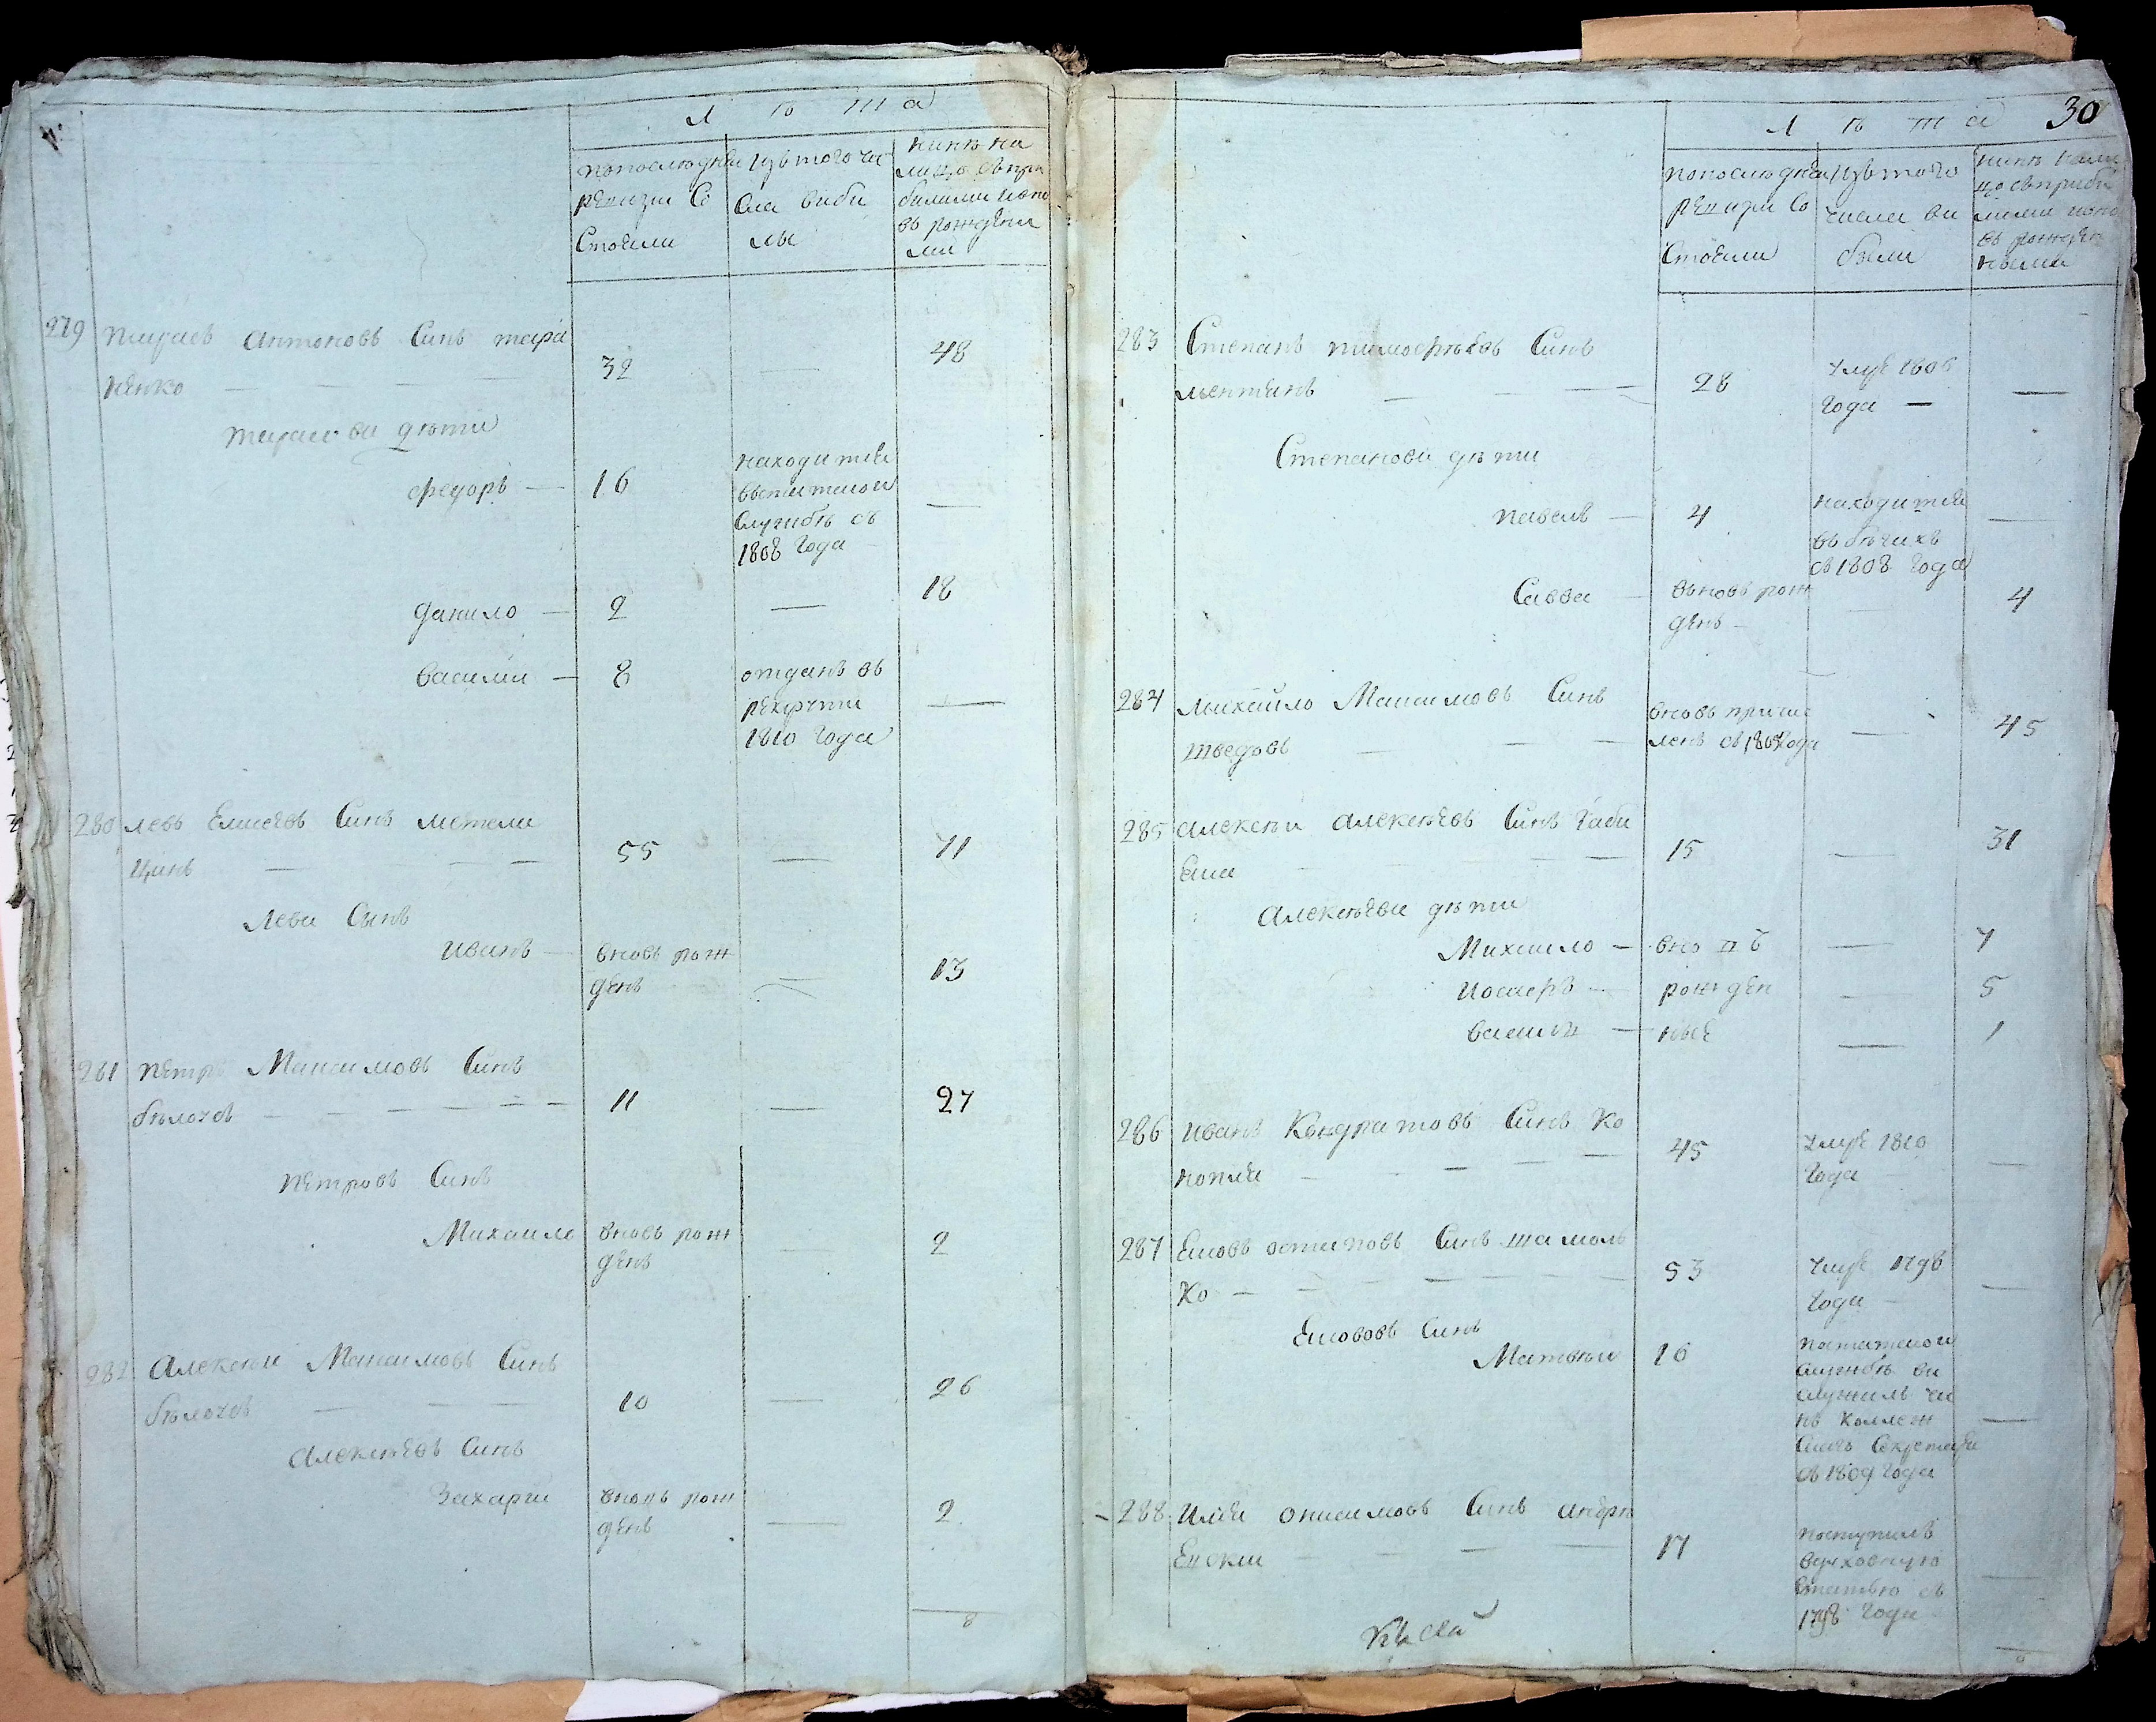 Л ѣ т а
попоследней
ревизии со
стояли
изътого чи
сла выбы
лы
нинѣ на
лицо съпри
былыми ино
въ рожденны
ми
279 Тарасъ Антоновъ Синъ тара
ненко — — — — 32 — 48
Тарасови дѣти
Федоръ — 16 находится
въстатской
службѣ съ
1808 года —
Данило — 2 — 18
Василии — 8 отданъ въ
рекруты
1810 года —
280 Левъ Елисеевъ Синъ метели
цинъ — — — 55 — 71
Лева Сынъ
Иванъ — вновь рож
денъ — 13
281 Петръ Максимовъ Синъ
бѣлоусъ — — — — — 11 — 27
Петровъ Синъ
Михаило вновь рож
денъ — 2
282 Алексѣи Максимовъ Синъ
бѣлоусъ — — — 10 — 26
Алексѣевъ Синъ
Захарии вновь рож
денъ — 2
8
30
Л ѣ т а
попоследней
ревизии со
стояли
изътого
числа вы
были
нинѣ нали
цо съприбы
лыми ино
въ рожден
ными
283 Степанъ тимофѣевъ Синъ
ментинъ — — — 28 умре 1806
года — —
Степанови дѣти
Павелъ — 4 находится
въ бѣгахъ
съ 1808 года —
Савва — вновь рож
денъ — — 4
284 Михайло Максимовъ Синъ
шведовъ — — — вновь причис
ленъ съ 1807 года — 45
285 Алексѣи Алексѣевъ Синъ Габи
Елш — — 15 — 31
Алексѣеви дѣти
Михаило — вно въ — 7
Иосифъ — рожден — 5
Василіи — ные — 1
286 Иванъ Кондратовъ Синъ Ко
нопля — — — — 45 умре 1810
года —
287 Есиовъ остиповъ Синъ шамоль
ко — — — 53 умре 1798
года — —
Есиововъ Синъ
Матвѣи 16 постатской
службѣ ви
служилъ чи
нъ коллеж
скаго секретаря
съ 1809 года —
288 Илья Онисимовъ Синъ андрѣ
Евскии — — — 17 поступилъ
вдуховную
статью съ
1798 года —